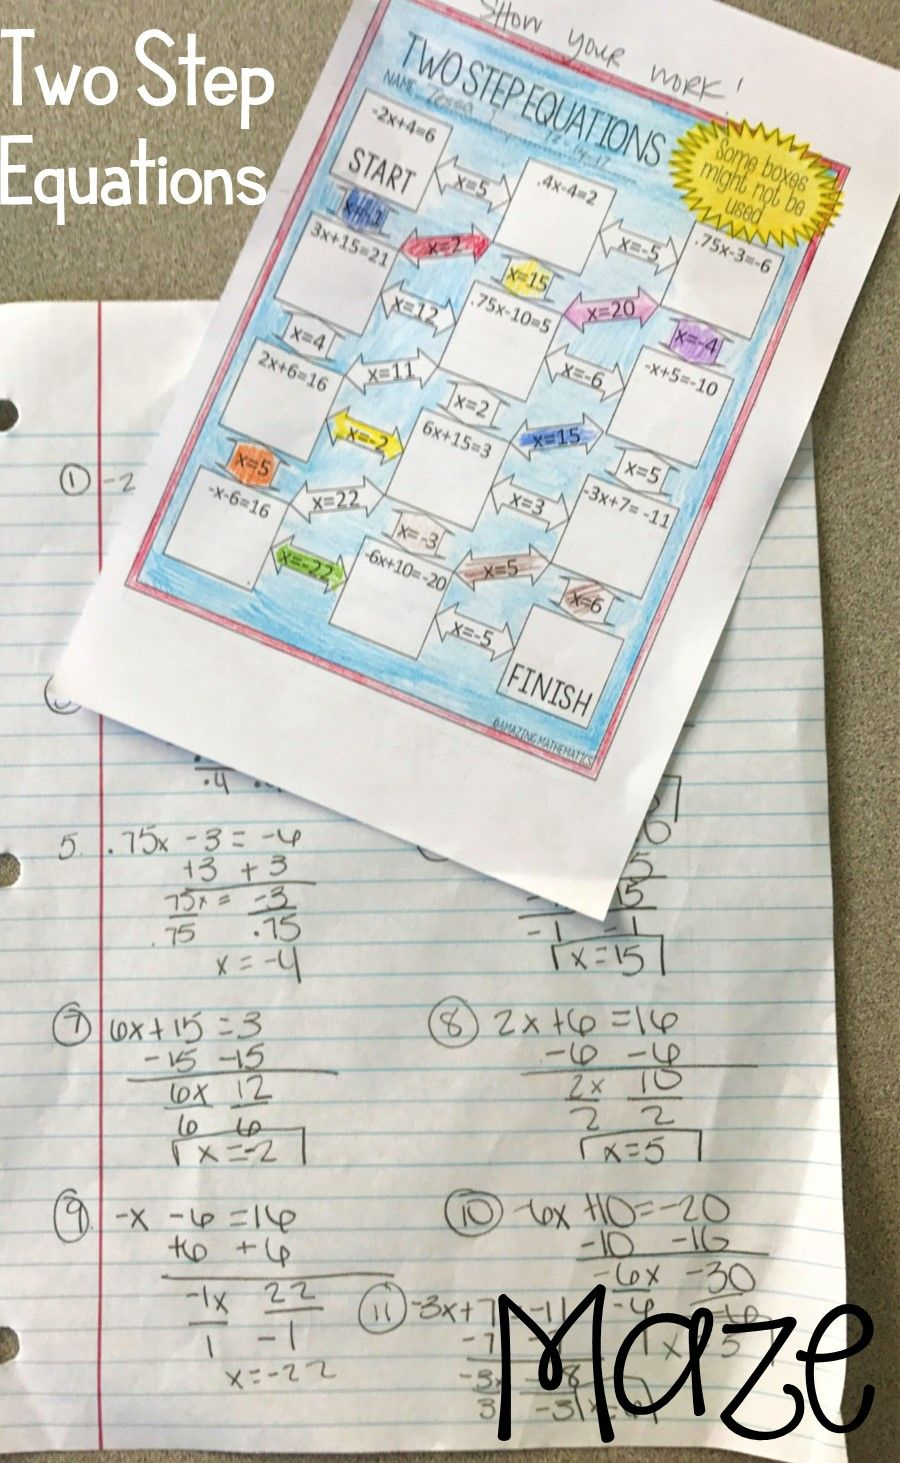 Two Step
Equations
Show your work!
TWO STEP EQUATIONS
NAME
Some boxes
might not be
used
-2x+4=6
START
x=5
.4x-4=2
x=-5
.75x-3=-6
3x+15=21
x=2
x=15
x=12
.75x-10=5
x=20
x=-4
x=4
2x+6=16
x=11
x=-6
-x+5=-10
x=2
x=-2
6x+15=3
x=15
x=5
x=5
-x-6=16
x=22
x=3
-3x+7=-11
x=-3
x=-22
-6x+10=-20
x=5
x=6
x=-5
FINISH
©AMAZING MATHEMATICS
① -2
.4
5. .75x -3 = -6
+3 +3
.75x = -3
.75 .75
x = -4
5
15
-1 -1
x=15
⑦ 6x+15=3
-15 -15
6x 12
6 6
x=-2
⑧ 2x+6=16
-6 -6
2x 10
2 2
x=5
⑨ -x -6 =16
+6 +6
-1x 22
1 -1
x=-22
⑩ -6x +10=-20
-10 -10
-6x -30
5
⑪ -3x+7 -11
-7
-3x -18
3 -3
Maze